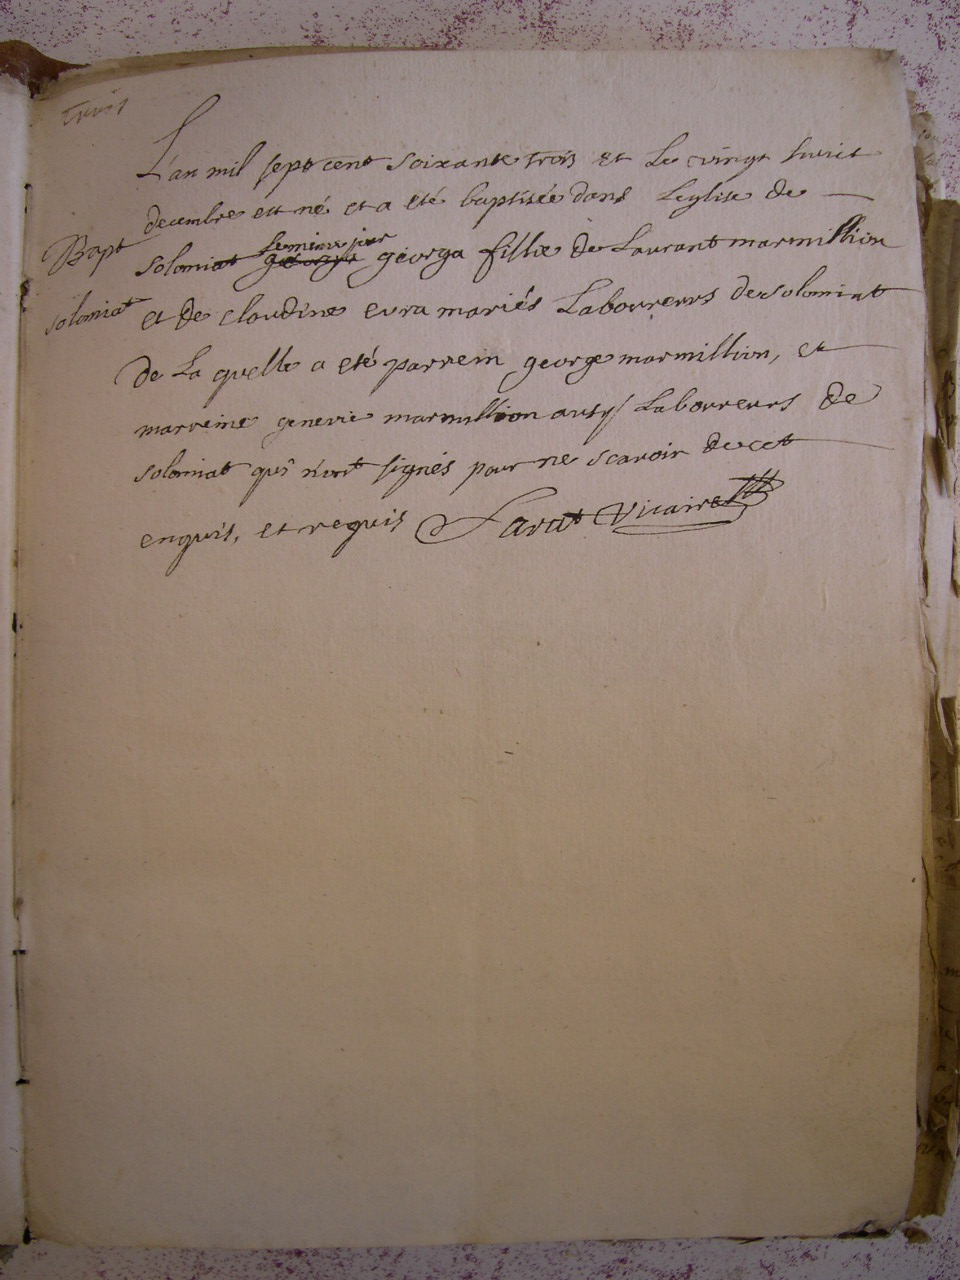 trois
L'an mil sept cent soixante trois et Le vingt huit
decembre est né et a eté baptisée dans Leglise de
Bapt
Le mime jour
solomiat george georga fillie de Laurant marmillion
solomiat
et de claudine evra mariés Laboureurs de solomiat
de La quelle a eté parrein george marmillion, et
marreine genevie marmillion ausy Laboureurs de
solomiat qui n'ont signés pour ne scavoir de cet
enquis, et requis Vicaire